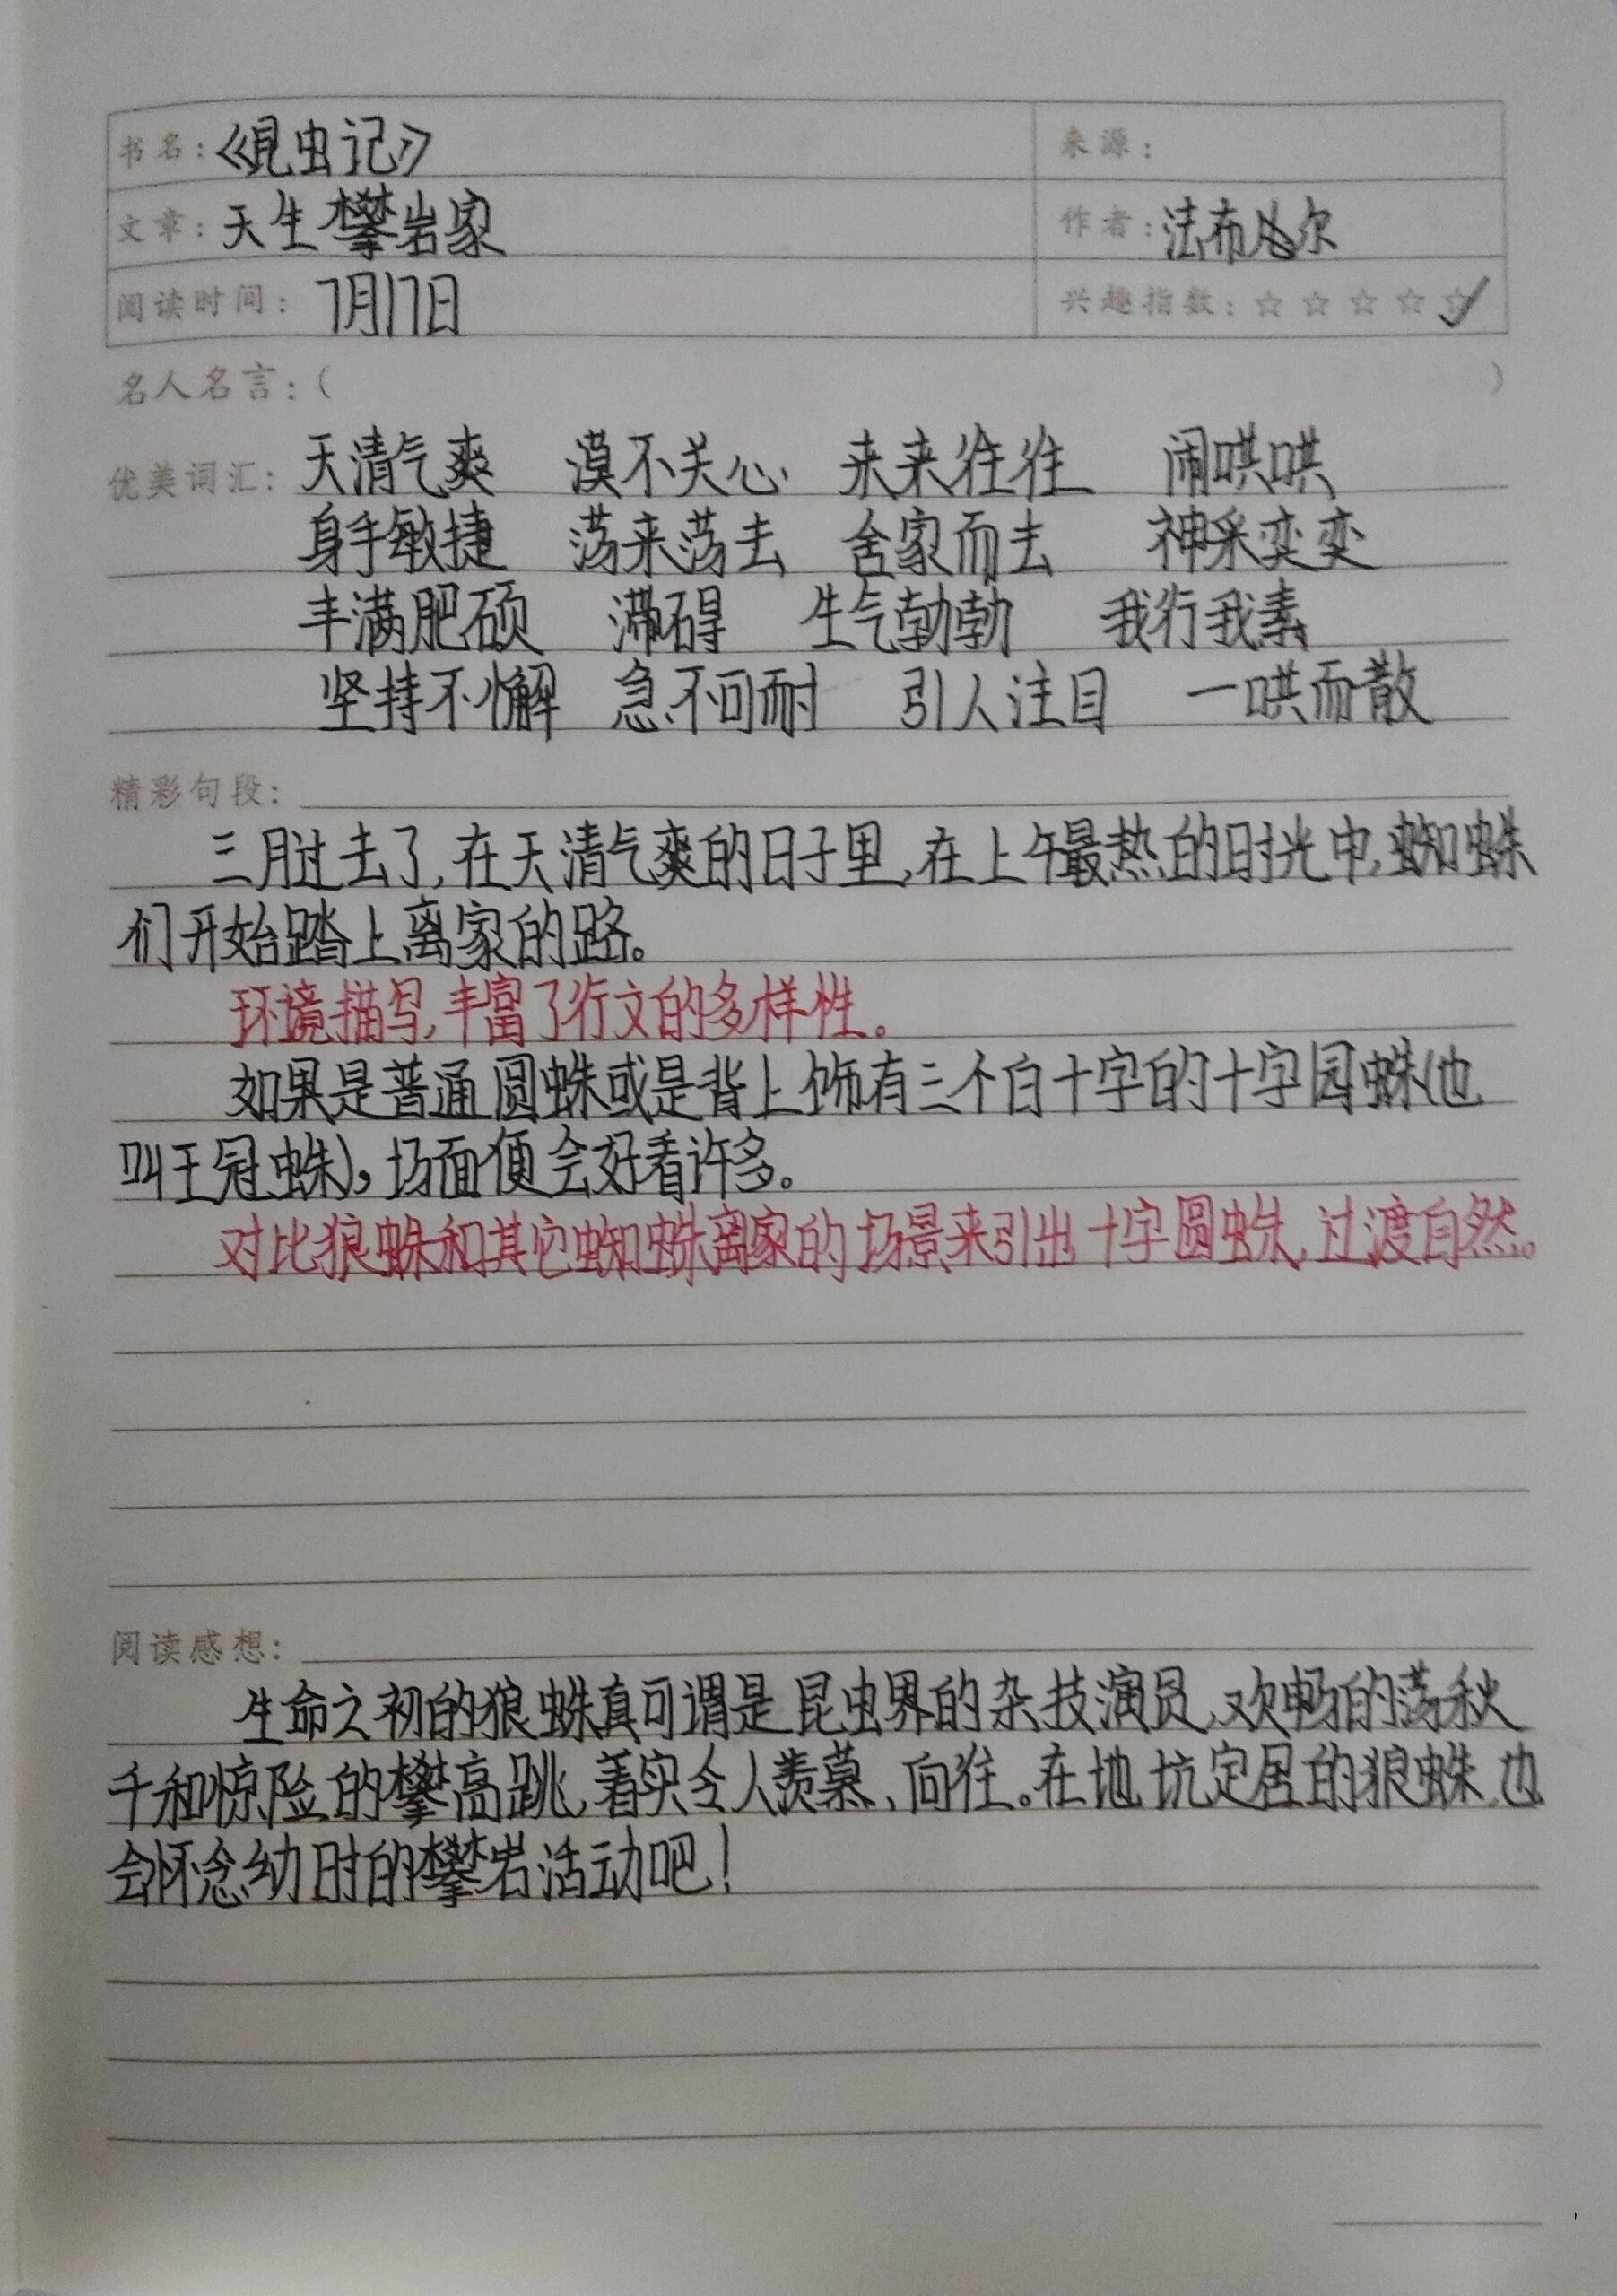 书名：《昆虫记》 来源：
文章：天生攀岩家 作者：法布尔
阅读时间：7月17日 兴趣指数：☆☆☆☆☆✓
名人名言：（ ）
优美词汇：天清气爽 漠不关心 来来往往 闹哄哄
身手敏捷 荡来荡去 舍家而去 神采奕奕
丰满肥硕 滞碍 生气勃勃 我行我素
坚持不懈 急不可耐 引人注目 一哄而散
精彩句段：
三月过去了，在天清气爽的日子里，在上午最热的时光中，蜘蛛
们开始踏上离家的路。
环境描写，丰富了行文的多样性。
如果是普通圆蛛或是背上饰有三个白十字的十字园蛛（也
叫王冠蛛），场面便会好看许多。
对比狼蛛和其它蜘蛛离家的场景来引出十字圆蛛，过渡自然。
阅读感想：
生命之初的狼蛛真可谓是昆虫界的杂技演员，欢畅的荡秋
千和惊险的攀高跳，着实令人羡慕、向往。在地坑定居的狼蛛，也
会怀念幼时的攀岩活动吧！